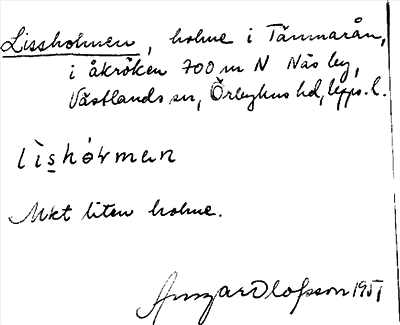 Lissholmen, holme i Tämnarån,
i åkröken 700 m N Näs by,
Västlands sn, Örbyhus hd, Upps. l.
lìshórmen
Mkt liten holme.
Ansgar Olofsson 1951